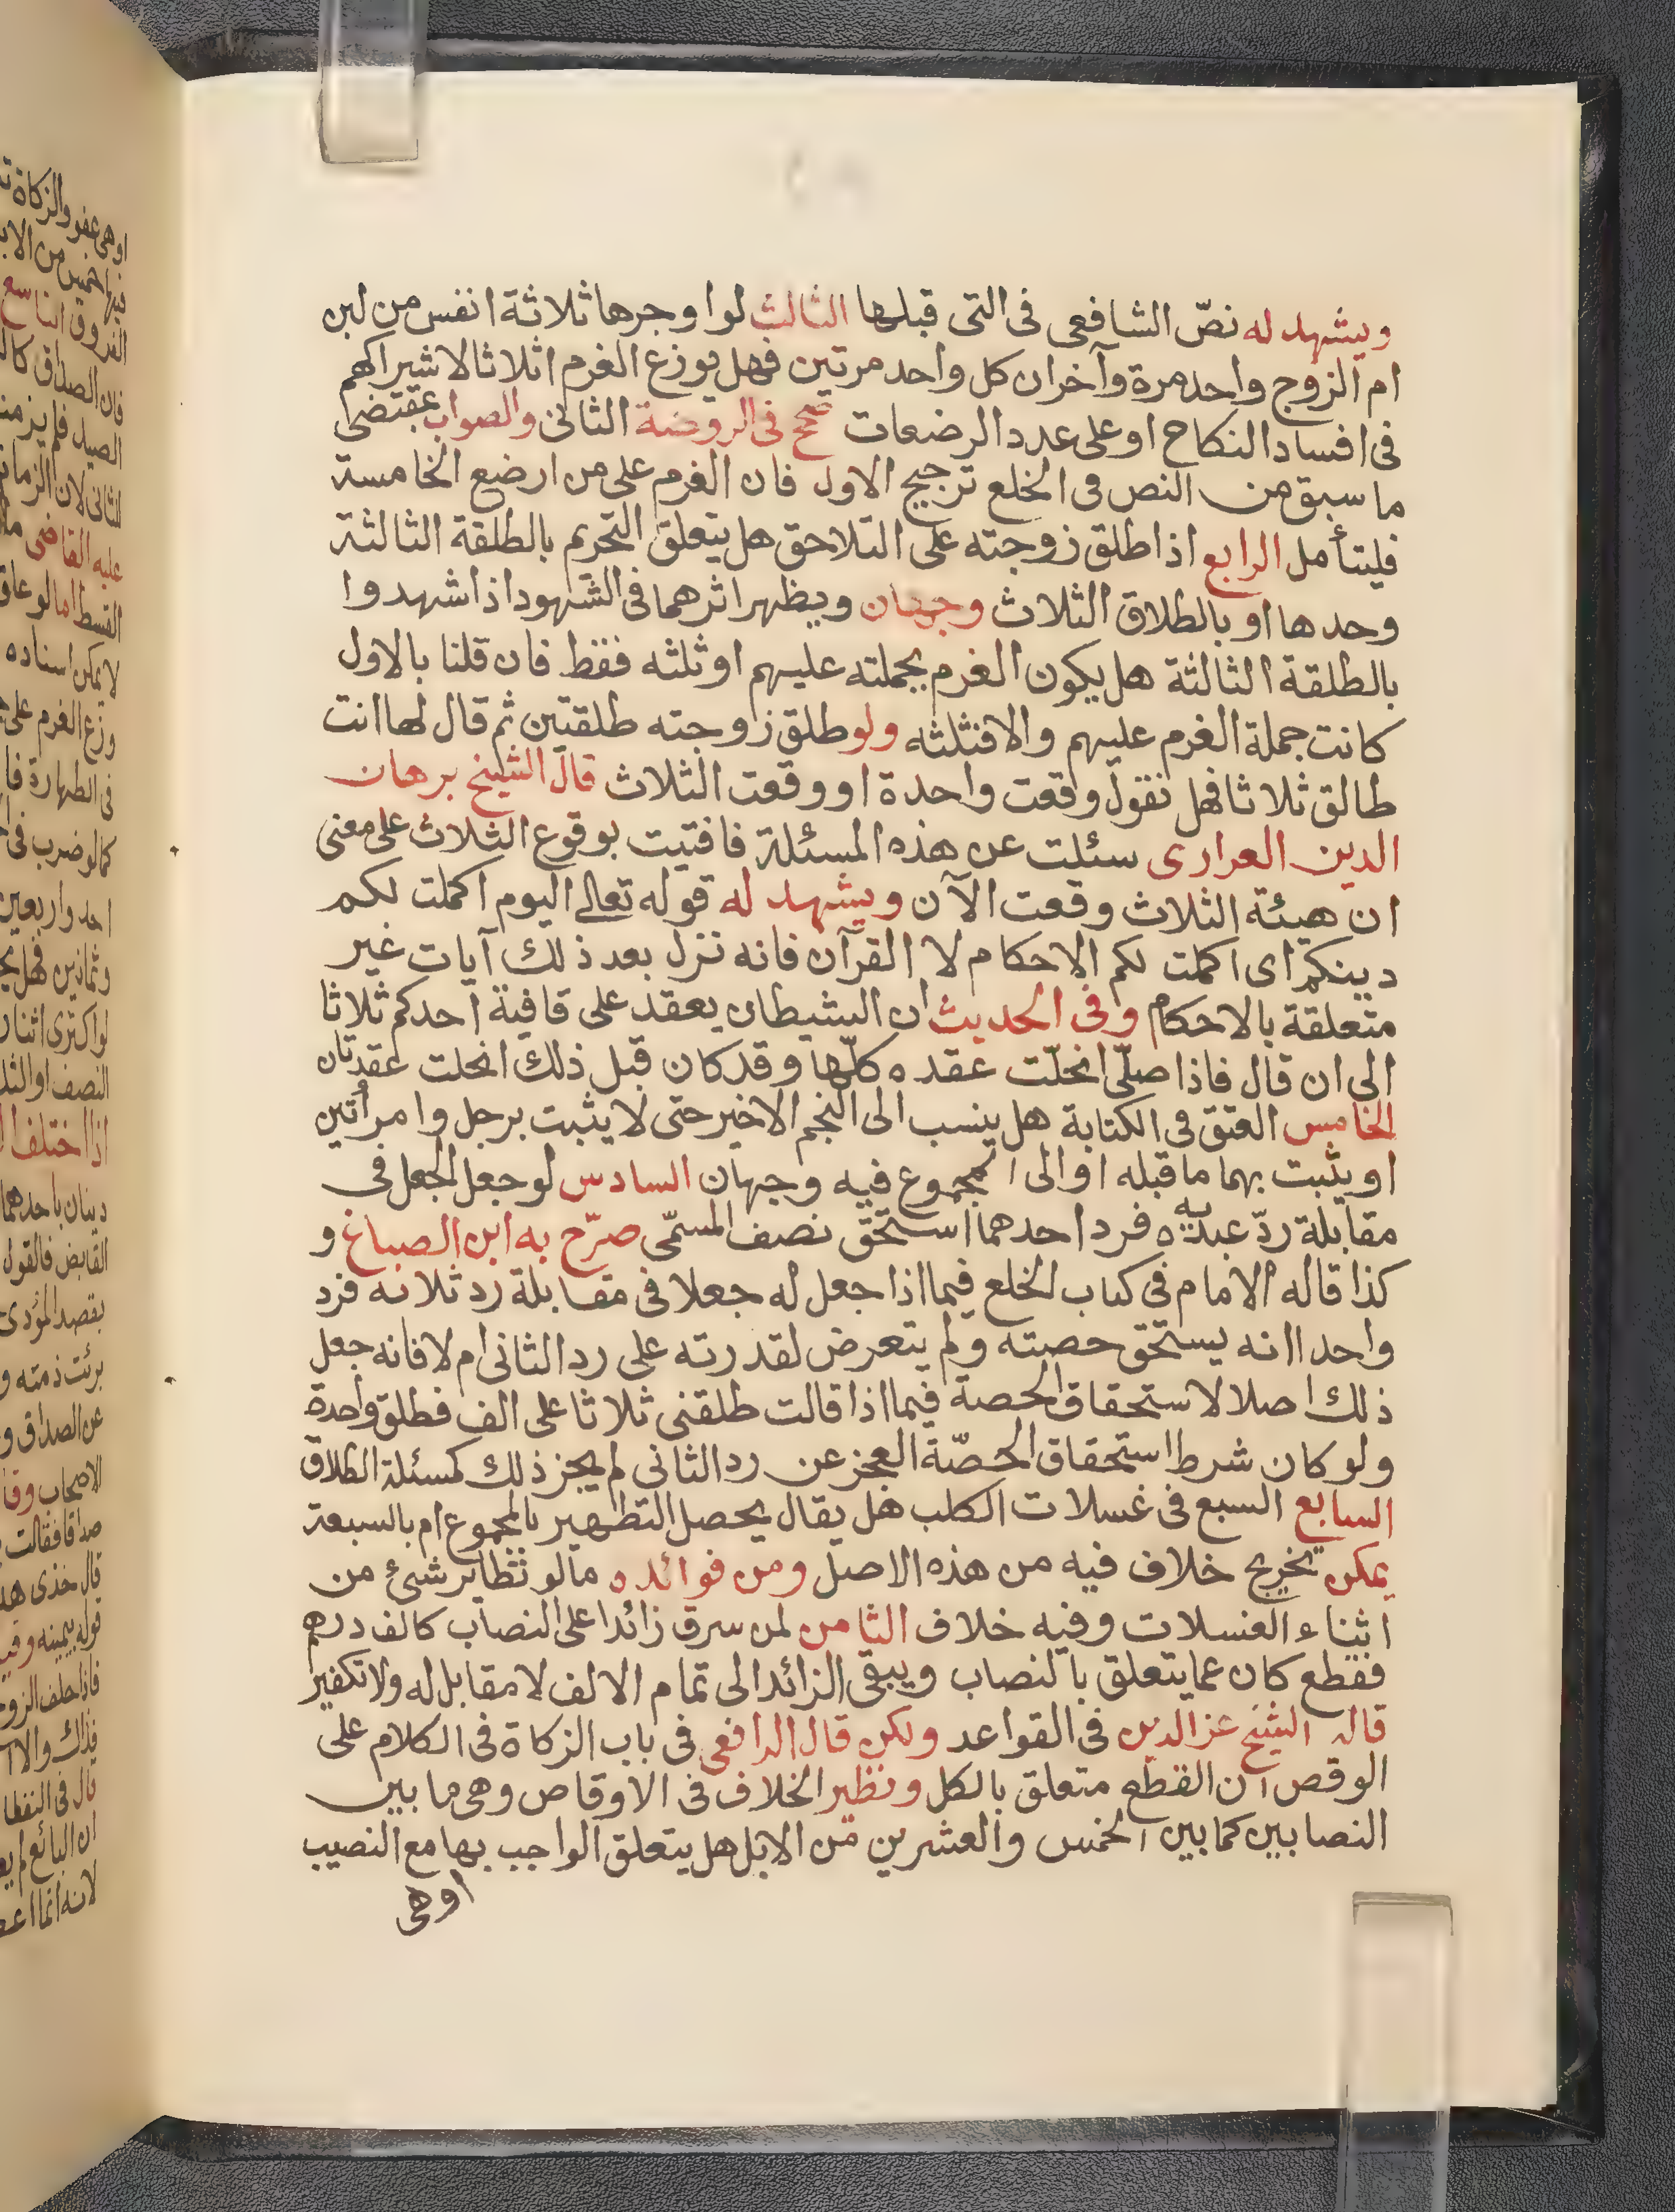 ويشهد له نصّ الشافعى فى التى قبلها الثالث لو اوجرها ثلاثة انفس من لبن
ام الزوج واحد مرة وآخران كل واحد مرتين فهل يوزع الغرم اثلاثا لاشتراكهم
فى افساد النكاح او على عدد الرضعات صحح فى الروضة الثانى والصواب بمقتضى
ما سبق من النص فى الخلع ترجيح الاول فان الغرم على من ارضع الخامسة
فليتأمل الرابع اذا طلق زوجته على التلاحق هل يتعلق التحريم بالطلقة الثالثة
وحدها او بالطلاق الثلاث وجهان ويظهر اثرهما فى الشهود اذا شهدوا
بالطلقة الثالثة هل يكون الغرم بجملته عليهم او ثلثه فقط فان قلنا بالاول
كانت جملة الغرم عليهم والا فثلثه ولو طلق زوجته طلقتين ثم قال لها انت
طالق ثلاثا فهل نقول وقعت واحدة او وقعت الثلاث قال الشيخ برهان
الدين العرارى سئلت عن هذه المسئلة فافتيت بوقوع الثلاث على معنى
ان هيئة الثلاث وقعت الآن ويشهد له قوله تعالى اليوم اكملت لكم
دينكم اى اكملت لكم الاحكام لا القرآن فانه نزل بعد ذلك آيات غير
متعلقة بالاحكام وفى الحديث ان الشيطان يعقد على قافية احدكم ثلاثا
الى ان قال فاذا صلّى انحلّت عقده كلّها وقد كان قبل ذلك انحلت عقدتان
الخامس العتق فى الكتابة هل ينسب الى النجم الاخير حتى لا يثبت برجل وامرأتين
او يثبت بهما ما قبله او الى المجموع فيه وجهان السادس لو جعل الجعل فى
مقابلة ردّ عبديه فرد احدهما استحق نصف المسمّى صرّح به ابن الصباغ و
كذا قاله الامام فى كتاب الخلع فيما اذا جعل له جعلا فى مقابلة رد ثلاثه فرد
واحدا انه يستحق حصته ولم يتعرض لقدرته على رد الثانى ام لا فانه جعل
ذلك اصلا لاستحقاق الحصة فيما اذا قالت طلقنى ثلاثا على الف فطلق واحدة
ولو كان شرط استحقاق الحصّة العجز عن رد الثانى لم يجز ذلك كمسئلة الطلاق
السابع السبع فى غسلات الكلب هل يقال يحصل التطهير بالمجموع ام بالسبعة
يمكن تخريج خلاف فيه من هذه الاصل ومن فوائده ما لو تطاير شئ من
اثناء الغسلات وفيه خلاف الثامن لمن سرق زائدا على النصاب كالف درهم
فقطع كان عما يتعلق بالنصاب ويبقى الزائد الى تمام الالف لا مقابل له ولا تكفير
قاله الشيخ عز الدين فى القواعد ولكن قال الرافعى فى باب الزكاة فى الكلام على
الوقص ان القطع متعلق بالكل ونظير الخلاف فى الاوقاص وهى ما بين
النصابين كما بين الخمس والعشرين من الابل هل يتعلق الواجب بها مع النصيب
اوهى